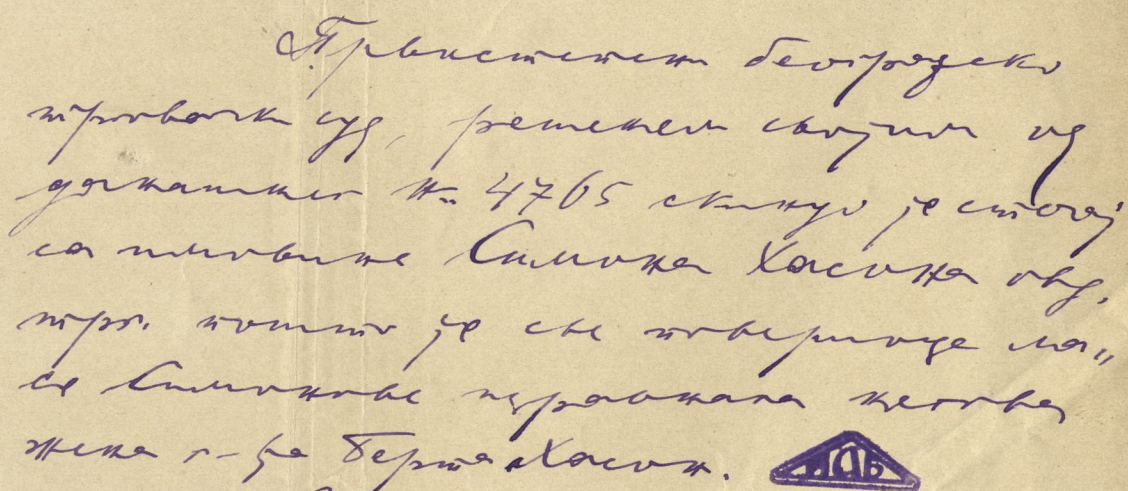 Првистепени београдски
трговачки суд, решењем својим од
данашњег № 4765 скинуо је стециј
са имовине Симона Хасона овд.
трг. пошто је све повериоце ма„
се Симонове израмнала његова
жена г-ђа Берта Хасон.
ИАБ